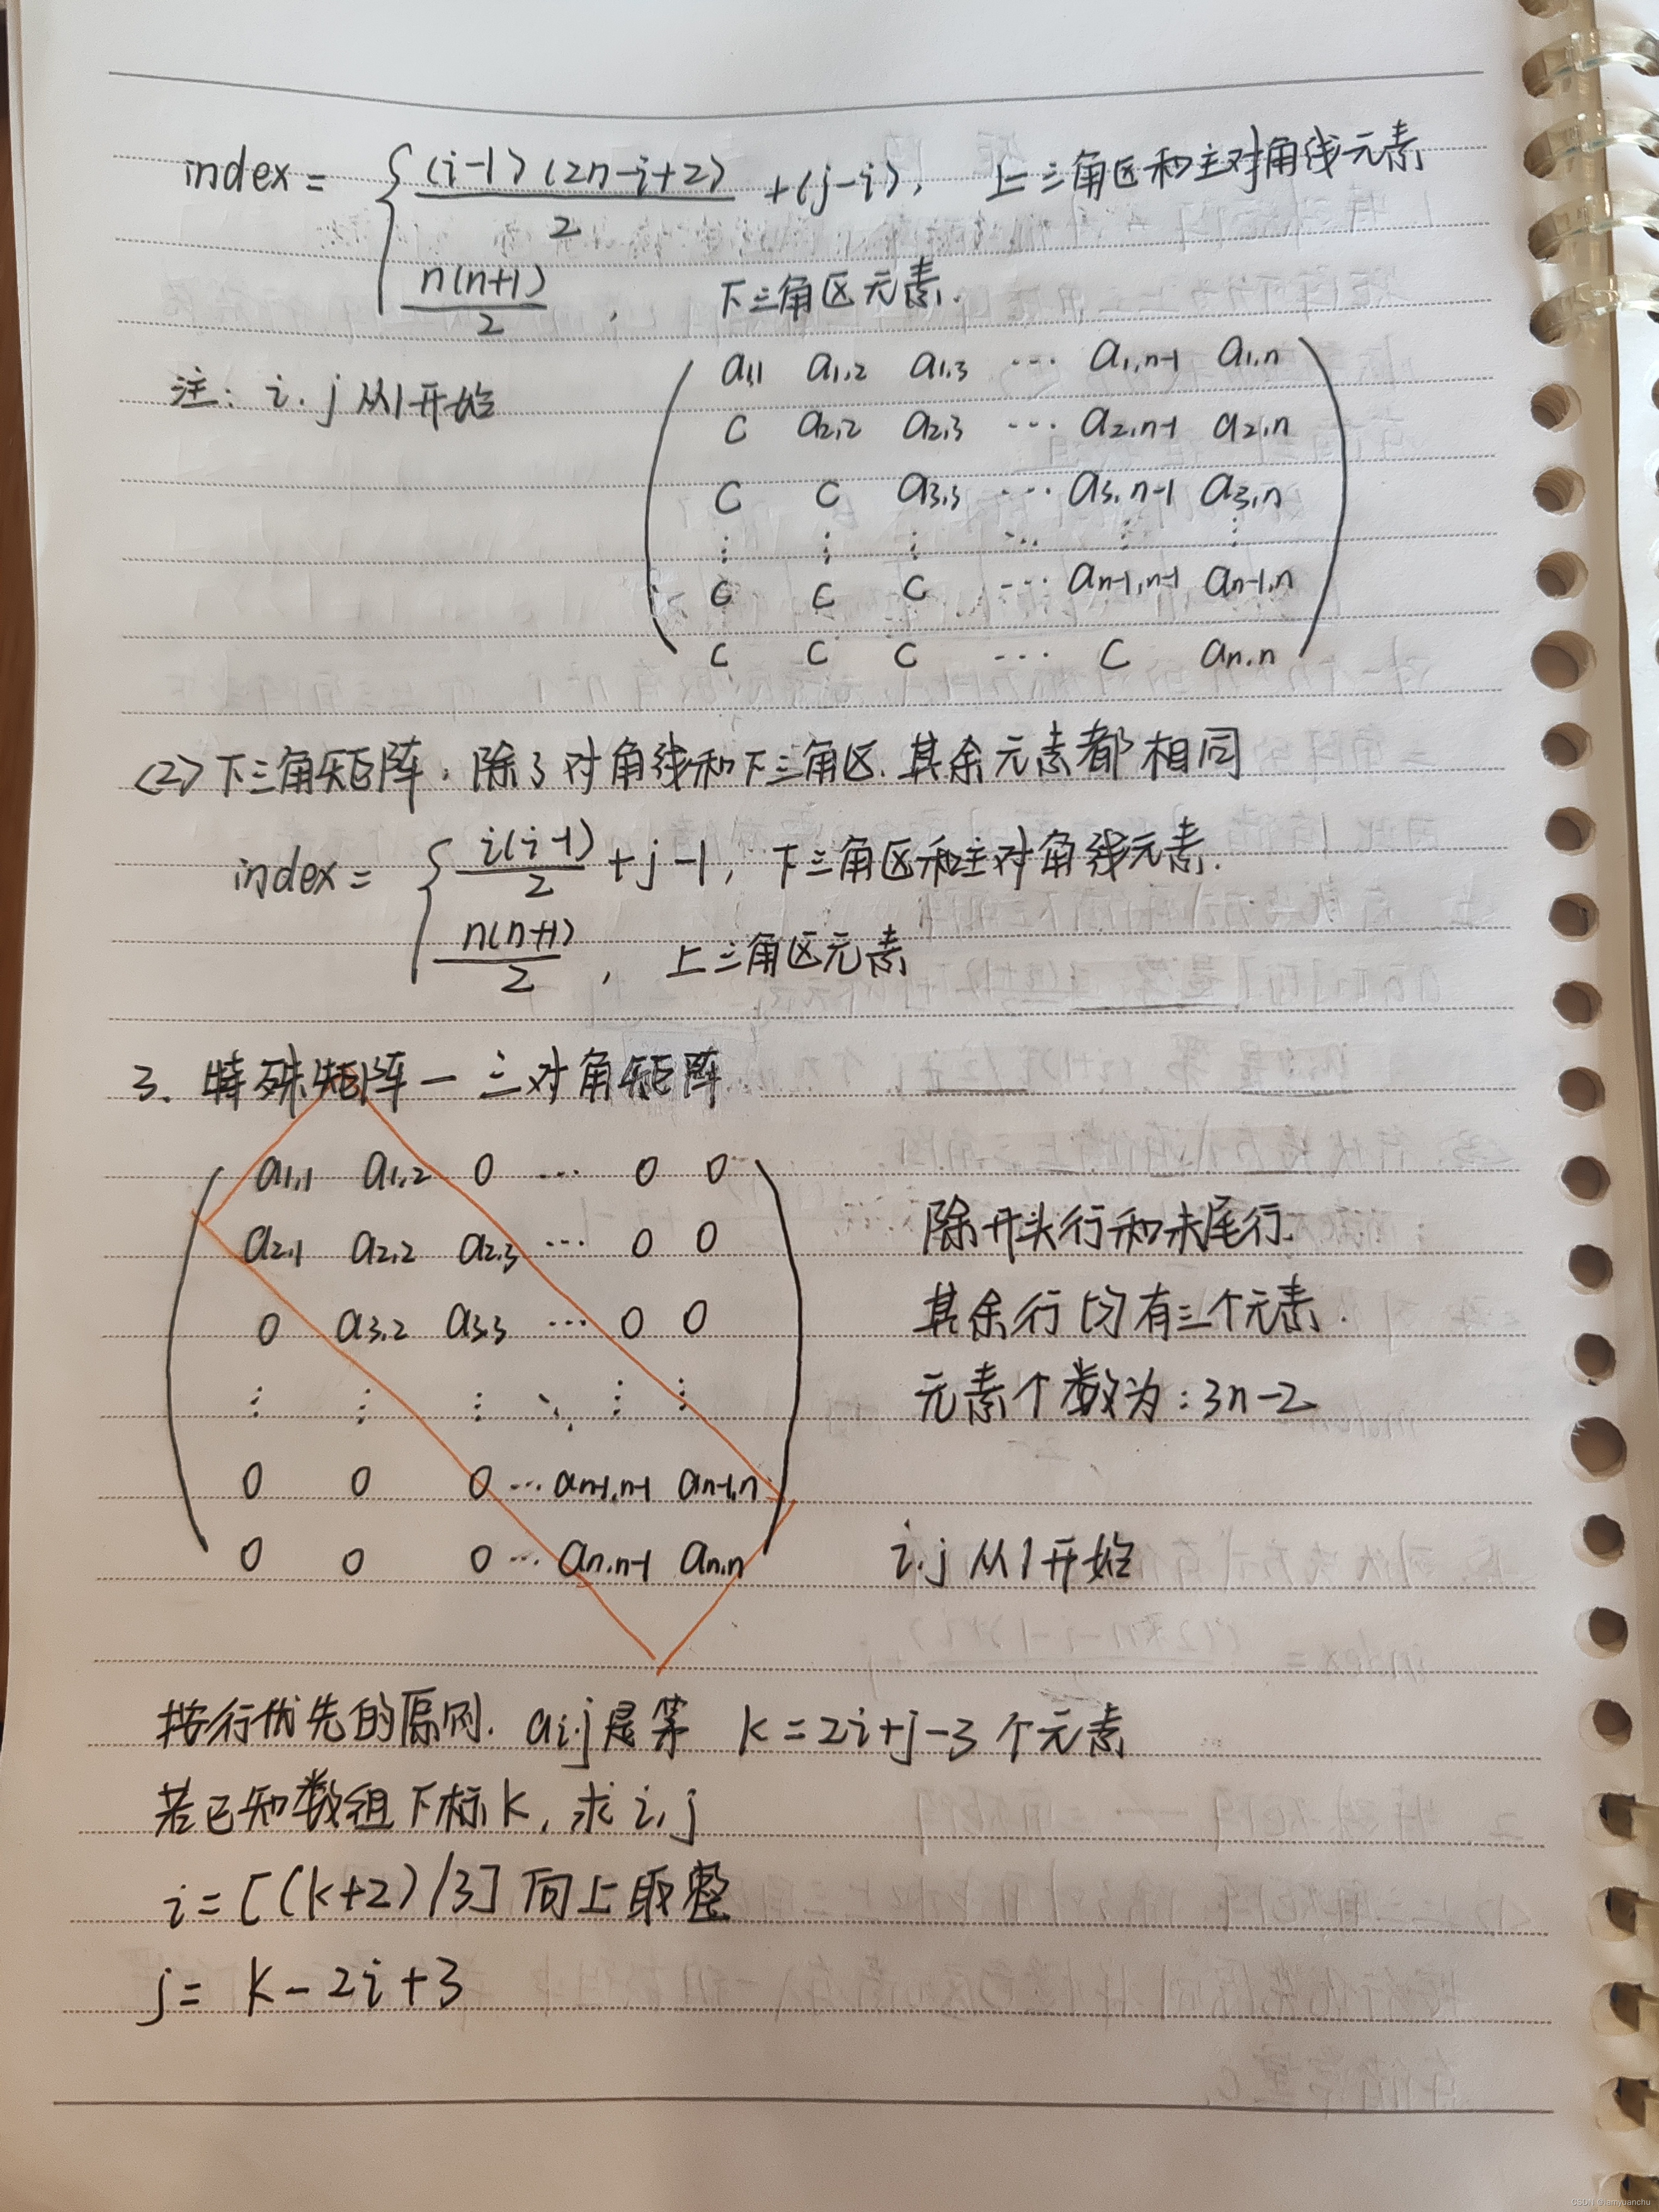 index = { (i-1)(2n-i+2)/2 + (j-i), 上三角区和主对角线元素
n(n+1)/2, 下三角区元素.
注: i.j 从1开始
a1,1 a1,2 a1,3 … a1,n-1 a1,n
c a2,2 a2,3 … a2,n-1 a2,n
c c a3,3 … a3,n-1 a3,n
⋮ ⋮ ⋮ ⋱ ⋮ ⋮
c c c … an-1,n-1 an-1,n
c c c … c an,n
(2) 下三角矩阵. 除了对角线和下三角区. 其余元素都相同
index = { i(i-1)/2 + j-1, 下三角区和主对角线元素.
n(n+1)/2, 上三角区元素
3. 特殊矩阵—三对角矩阵
a1,1 a1,2 0 … 0 0
a2,1 a2,2 a2,3 … 0 0
0 a3,2 a3,3 … 0 0
⋮ ⋮ ⋮ ⋱ ⋮ ⋮
0 0 0 … an-1,n-1 an-1,n
0 0 0 … an,n-1 an,n
除开头行和末尾行.
其余行均有三个元素.
元素个数为: 3n-2
i.j 从1开始
按行优先的原则. ai.j是第 k=2i+j-3个元素
若已知数组下标k, 求i,j
i=[(k+2)/3]向上取整
j= k-2i+3
CSDN @iamyuanchu